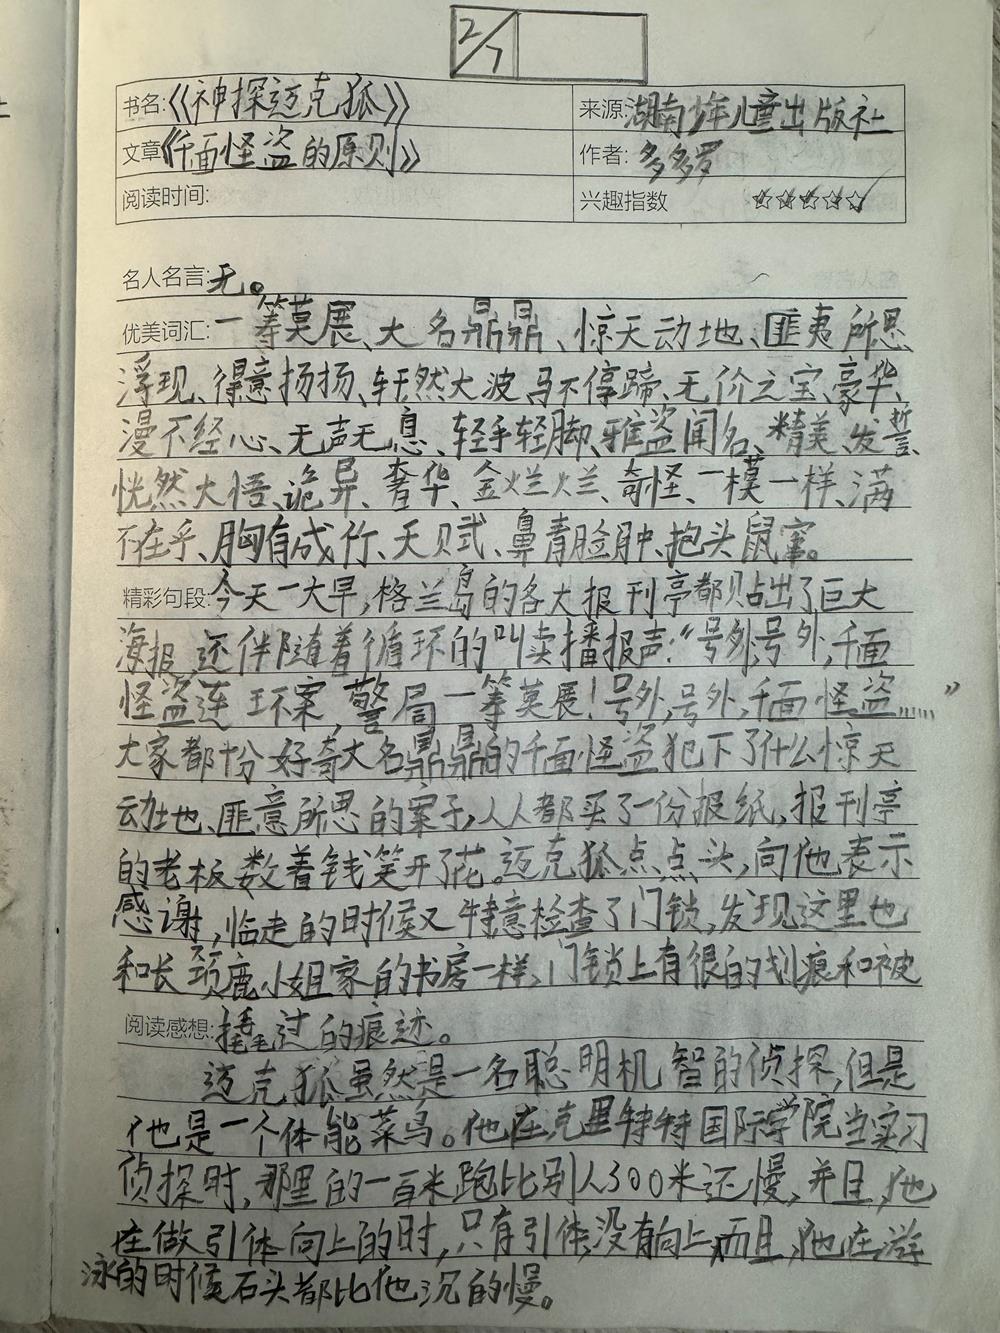 2/7
书名:《神探迈克狐》 来源:湖南少年儿童出版社
文章《千面怪盗的原则》 作者:多多罗
阅读时间: 兴趣指数 ☆☆☆☆☆
名人名言:无。
优美词汇:一筹莫展、大名鼎鼎、惊天动地、匪夷所思
浮现、得意扬扬、轩然大波、马不停蹄、无价之宝、豪华、
漫不经心、无声无息、轻手轻脚、雅盗闻名、精美、发誓、
恍然大悟、诡异、奢华、金烂烂、奇怪、一模一样、满
不在乎、胸有成竹、天赋、鼻青脸肿、抱头鼠窜。
精彩句段:今天一大早,格兰岛的各大报刊亭都贴出了巨大
海报,还伴随着循环的叫卖播报声:“号外,号外,千面
怪盗连环案,警局一筹莫展!号外,号外,千面怪盗……”
大家都十份好奇大名鼎鼎的千面怪盗犯下了什么惊天
动地、匪意所思的案子,人人都买了一份报纸,报刊亭
的老板数着钱笑开了花。迈克狐点点头,向他表示
感谢,临走的时候又特意检查了门锁,发现这里也
和长颈鹿小姐家的书房一样,门锁上有很的划痕和被
阅读感想:撬过的痕迹。
迈克狐虽然是一名聪明机智的侦探,但是
他是一个体能菜鸟。他在克里特特国际学院当实习
侦探时,那里的一百米跑比别人300米还慢,并且,他
在做引体向上的时,只有引体,没有向上,而且,他在游
泳的时候石头都比他沉的慢。